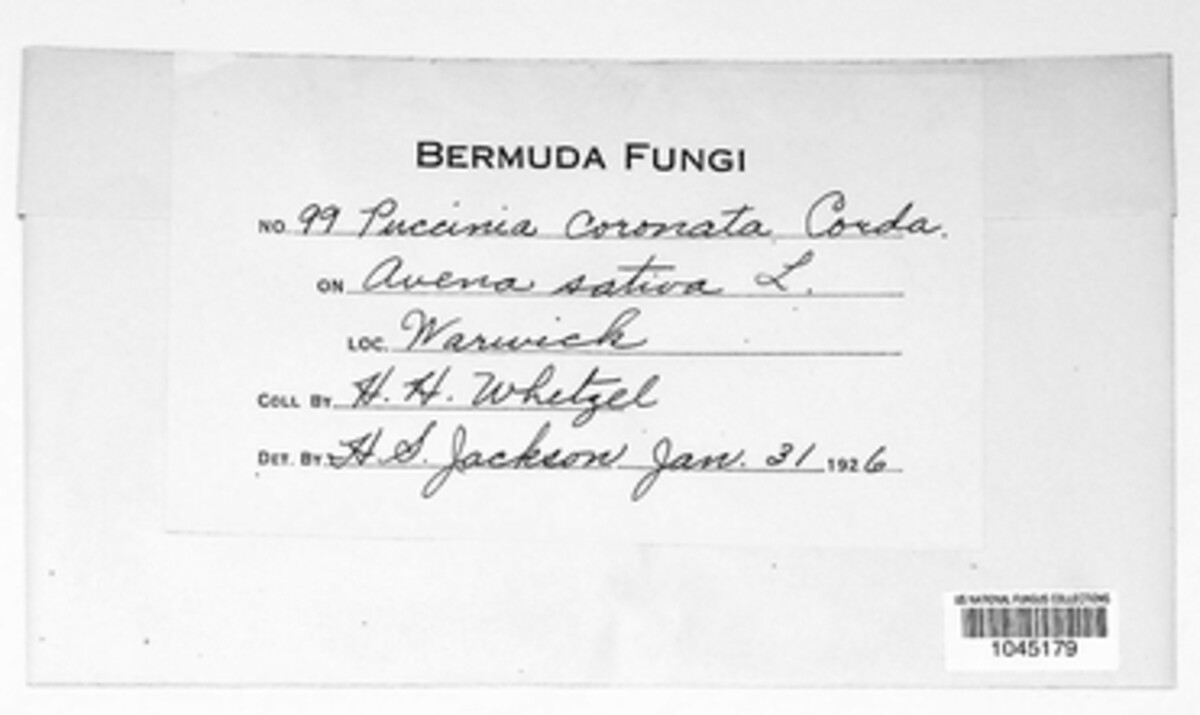 BERMUDA FUNGI
NO. 99 Puccinia coronata Corda.
ON Avena sativa L.
LOC. Warwick
COLL BY. H. H. Whetzel
DET. BY. H. S. Jackson Jan. 31 1926
US NATIONAL FUNGUS COLLECTIONS
1045179